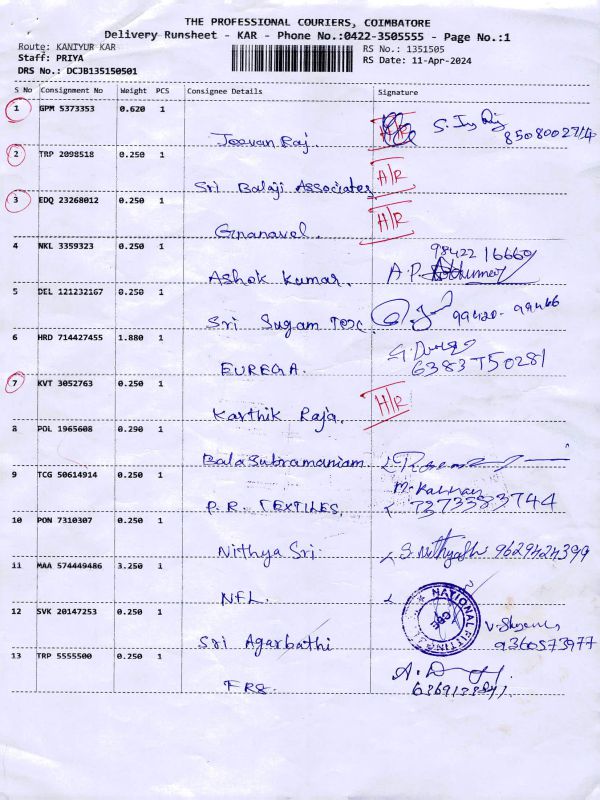 THE PROFESSIONAL COURIERS, COIMBATORE
Delivery Runsheet - KAR - Phone No.:0422-3505555 - Page No.:1
Route: KANIYUR KAR RS No.: 1351505
Staff: PRIYA RS Date: 11-Apr-2024
DRS No.: DCJB135150501
S No Consignment No Weight PCS Consignee Details Signature
1 GPM 5373353 0.620 1
Jeevan Raj. H/R 8508002714
2 TRP 2098518 0.250 1
Sri Balaji Associates H/R
3 EDQ 23268012 0.250 1
Gnanavel. H/R
4 NKL 3359323 0.250 1 98422 16660
Ashok Kumar. A.P.
5 DEL 121232167 0.250 1
Sri Sugam Tex 99420-99466
6 HRD 714427455 1.880 1
EUREGA. 6383750281
7 KVT 3052763 0.250 1
Karthik Raja. H/R
8 POL 1965608 0.290 1
Balasubramaniam
9 TCG 50614914 0.250 1
P.R. TEXTILES, 7373583744
10 PON 7310307 0.250 1
Nithya Sri. 9629424399
11 MAA 574449486 3.250 1
NFL. NATIONAL FITTINGS
12 SVK 20147253 0.250 1
Sri Agarbathi 9360573977
13 TRP 5555500 0.250 1
FRS.